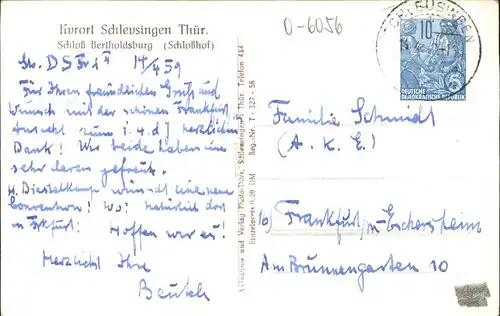 Kurort Schleusingen Thür.
Schloß Bertholdsburg (Schloßhof)
O-6056
SCHLEUSINGEN
10
DEUTSCHE
DEMOKRATISCHE REPUBLIK
14/4 59
Für Ihren freundlichen Gruß und
Wunsch mit der schönen Frankfurt
Ansicht zum 1.4.d J herzlichen
Dank! Wir beide haben uns
sehr daran gefreut.
H. Diestelkamp wünscht eine neue
Convention! Wo? natürlich dort
in Frkfurt! Hoffen wir es!
Herzlichst Ihre
Beutel
Aufnahme und Verlag Photo-Thör, Schleusingen Thür. Telefon 464
Einzelpreis 0,20 DM Reg.-Nr. T - 327 - 58
Familie Schmidt
(A. K. E.)
Frankfurt/M-Eschersheim
Am Brunnengarten 10